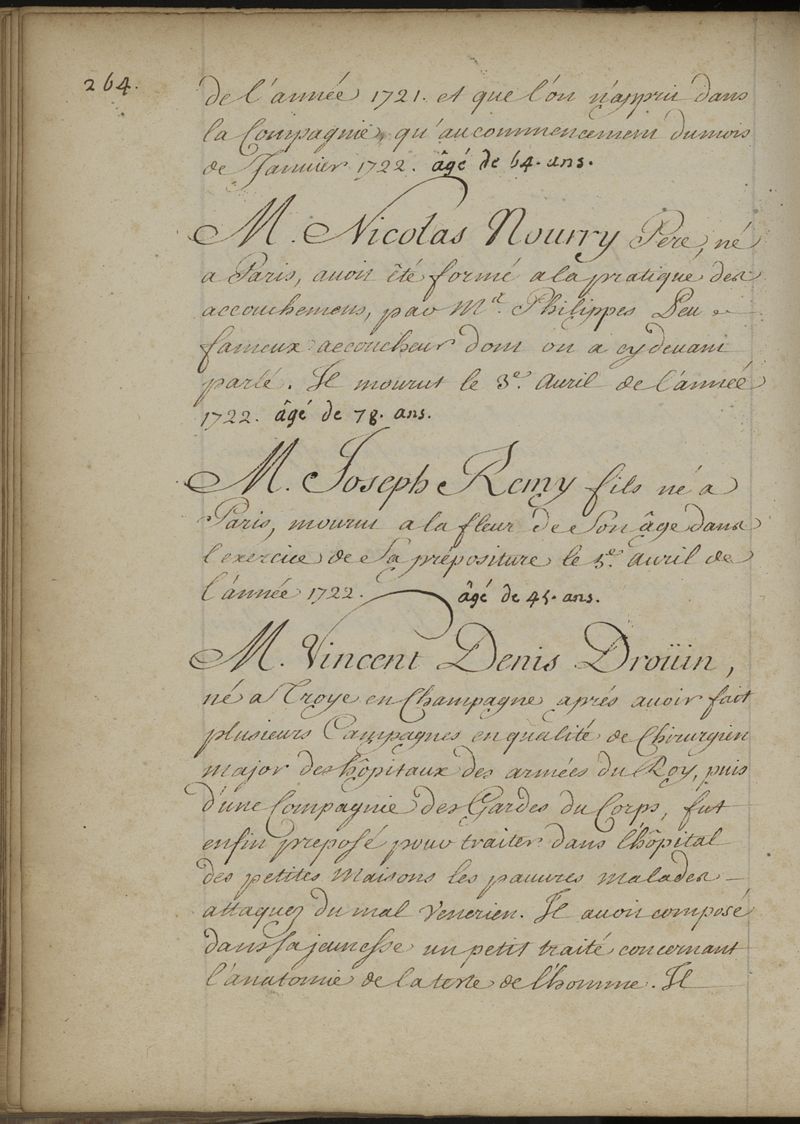 264.
de l'année 1721. et que l'on n'apprit dans
la Compagnie, qu'au commencement du mois
de Janvier 1722. âgé de 64. ans.
M. Nicolas Nourry Pere, né
a Paris, avoit êté formé a la pratique des
accouchemens, par Mr. Philippes Peu
fameux accoucheur dont on a cy devant
parlé. Il mourut le 3e. Avril de l'année
1722. âgé de 78. ans.
M. Joseph Remy fils né a
Paris, mourut a la fleur de Son âge dans
l'exercice de Sa prépositure le 5e. avril de
l'année 1722. âgé de 45. ans.
M. Vincent Denis Droüin,
né a Troye en Champagne aprés avoir fait
plusieurs Campagnes en qualité de Chirurgien
major des hôpitaux des armées du Roy, puis
d'une Compagnie des Gardes du Corps, fut
enfin preposé pour traiter dans l'hôpital
des petites Maisons les pauvres malades
attaquez du mal Venerien. Il avoit composé
dans sa jeunesse un petit traité concernant
l'anatomie de la teste de l'homme. Il